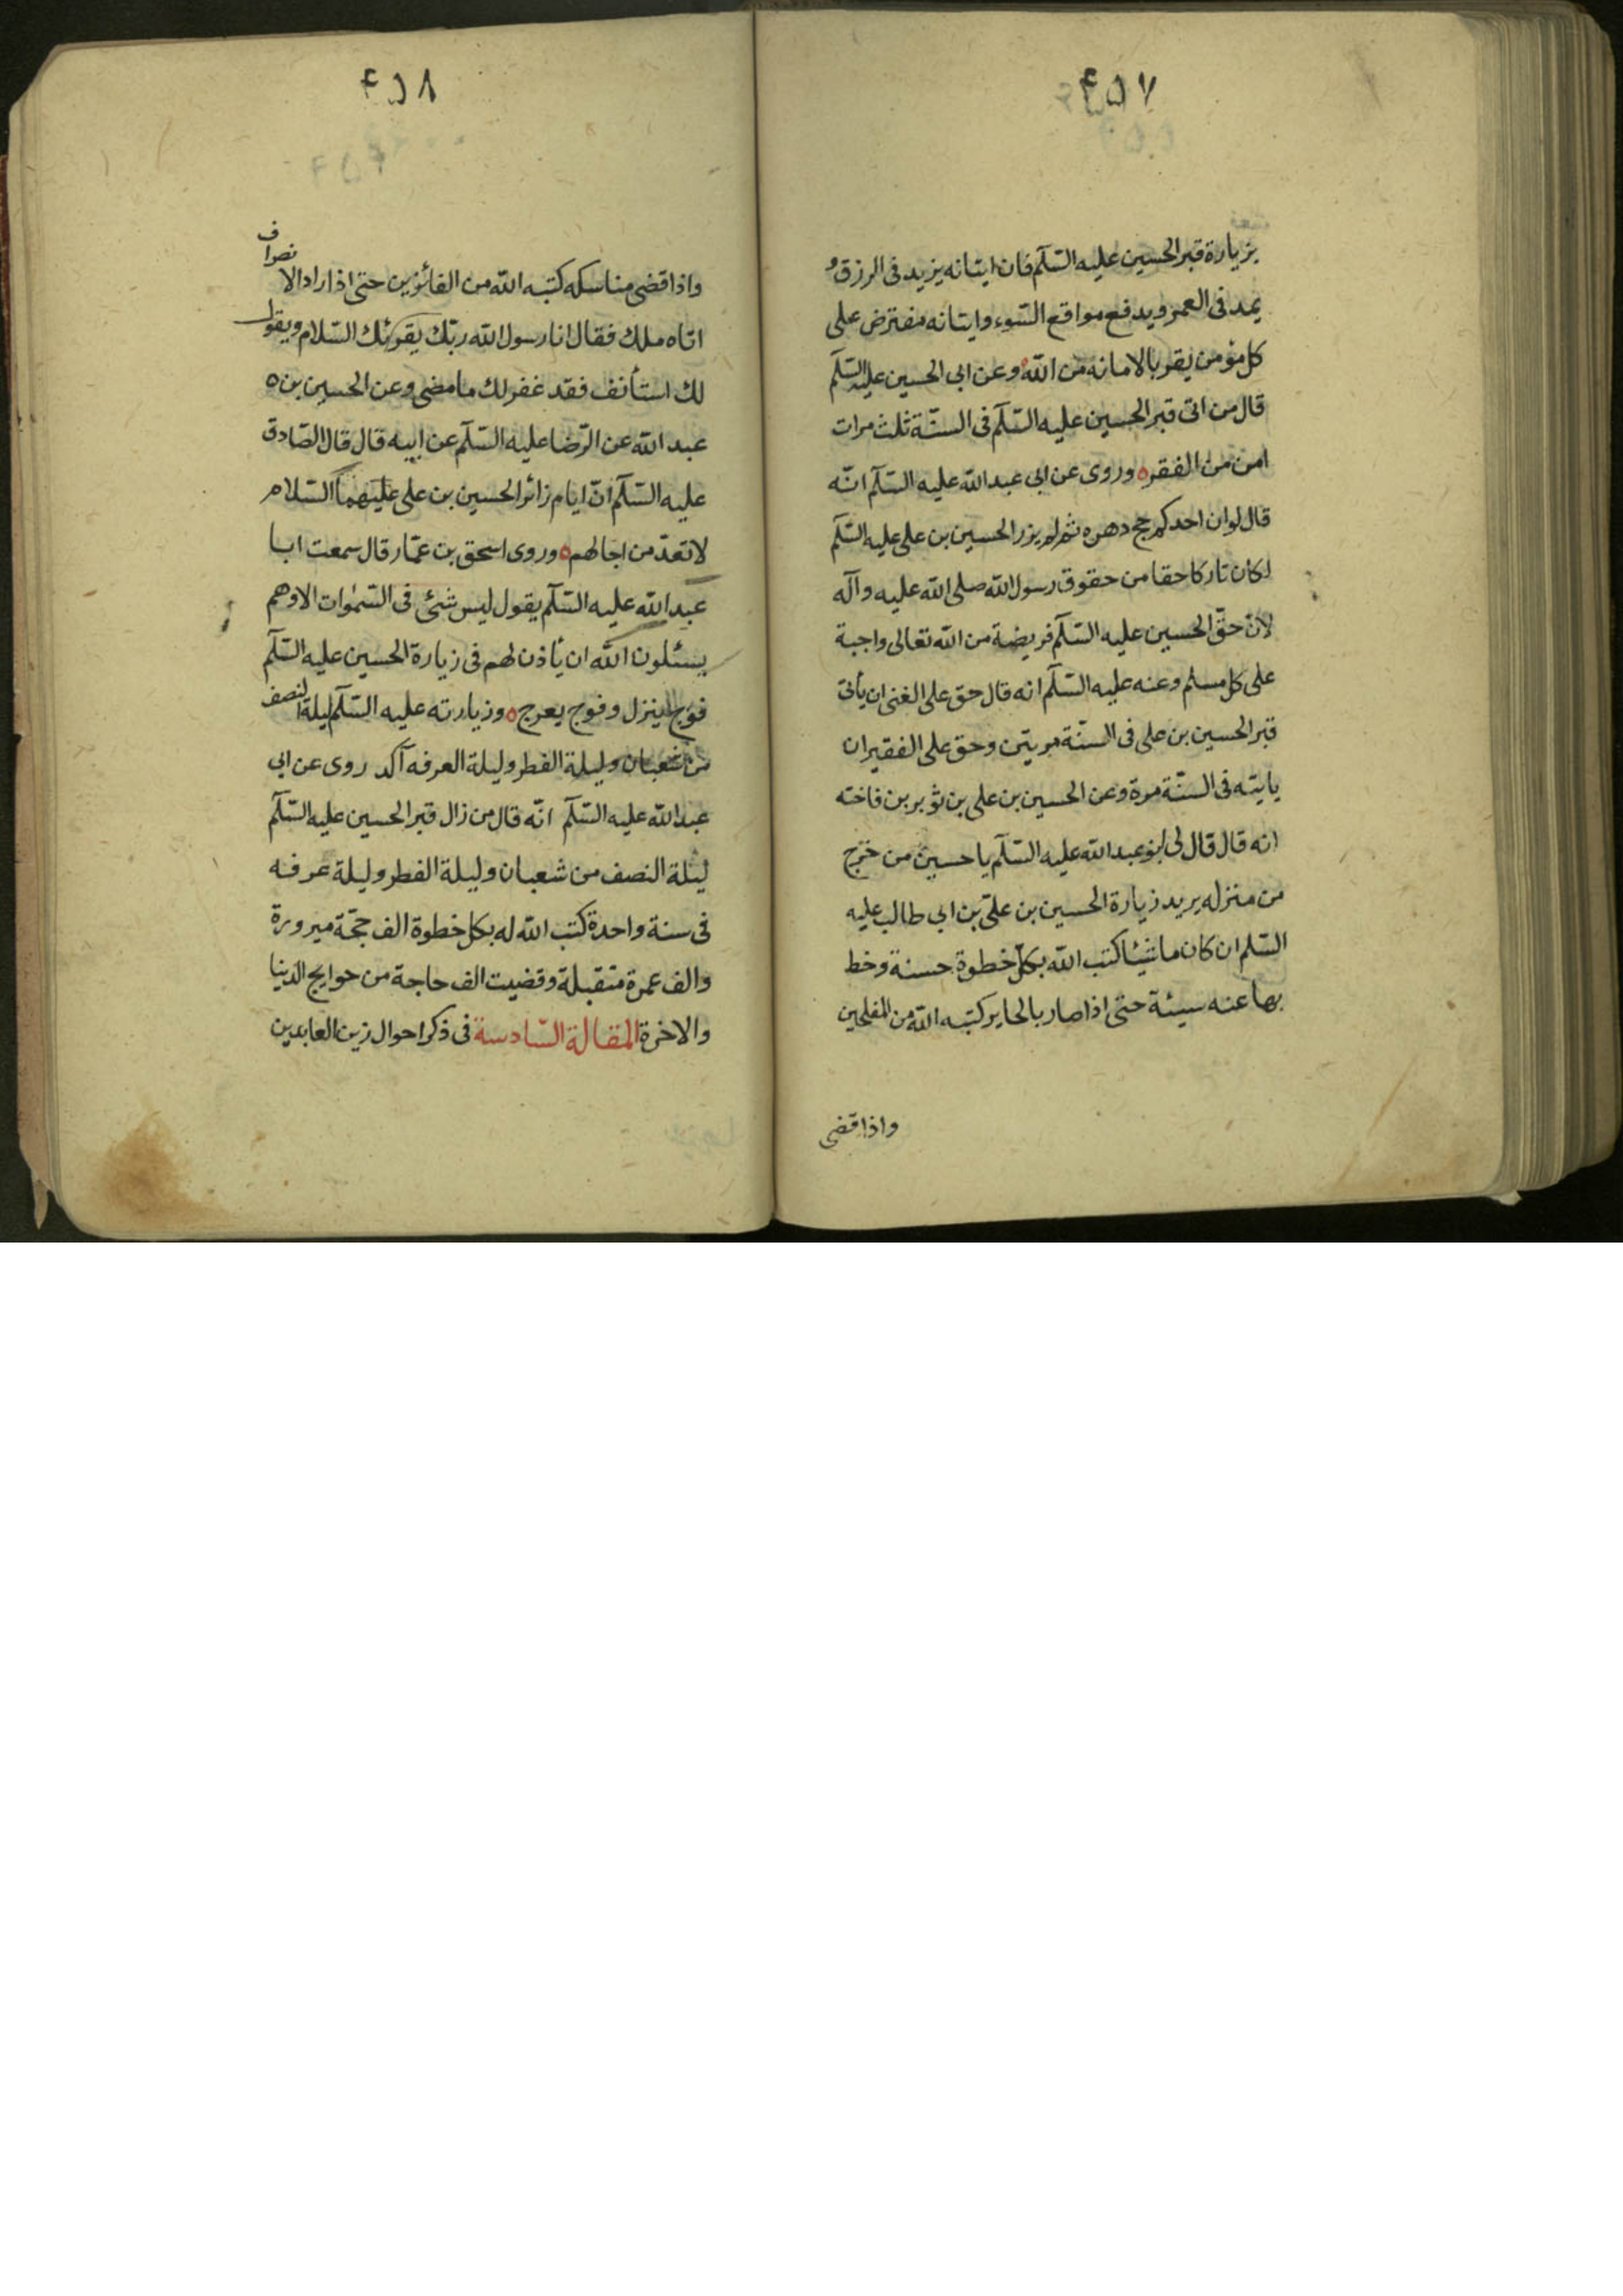 ۴۵۷
بزيارة قبر الحسين عليه السّلم فان ايتانه يزيد فى الرزق و
يمد فى العمر ويدفع مواقع السّوء وايتانه مفترض على
كل مؤمن يقر بالامانه من الله وعن ابى الحسين عليه السّلم
قال من اتى قبر الحسين عليه السّلم فى السنّة ثلث مرات
امن من الفقر ه وروى عن ابى عبد الله عليه السّلم انّه
قال لو ان احدكم حج دهره ثم لم يزر الحسين بن على عليه السّلم
لكان تاركا حقا من حقوق رسول الله صلى الله عليه وآله
لانّ حقّ الحسين عليه السّلم فريضة من الله تعالى واجبة
على كل مسلم وعنه عليه السّلم انه قال حق على الغنى ان يأتى
قبر الحسين بن على فى السنّة مريتن وحق على الفقير ان
ياتيه فى السنّة مرة وعن الحسين بن على بن ثوير بن فاخته
انه قال قال لى ابو عبد الله عليه السّلم يا حسين من خرج
من منزله يريد زيارة الحسين بن علىّ بن ابى طالب عليه
السّلم ان كان ماشيئا كتب الله بكلّ خطوة حسنة وخط
بها عنه سيئة حتى اذا صار بالحاير كتبه الله من المفلحين
واذا قضى
۴۵۸
واذا قضى مناسكه كتبه الله من الفائزين حتى اذا اراد الا نصراف
اتاه ملك فقال انا رسول الله ربّك يقرئك السّلام ويقول
لك استأنف فقد غفر لك ما مضى وعن الحسين بن ه
عبد الله عن الرّضا عليه السّلم عن ابيه قال قال الصّادق
عليه السّلم انّ ايام زائر الحسين بن على عليهما السّلام
لا تعدّ من اجالهم ه وروى اسحق بن عمّار قال سمعت ابا
عبد الله عليه السّلم يقول ليس شئ فى السّموات الا وهم
يسئلون الله ان يأذن لهم فى زيارة الحسين عليه السّلم
فوج ينزل وفوج يعرج ه وزيارته عليه السّلم ليلة النصف
من شعبان وليلة الفطر وليلة العرفه آكد روى عن ابى
عبد الله عليه السّلم انّه قال من زال قبر الحسين عليه السّلم
ليلة النصف من شعبان وليلة الفطر وليلة عرفه
فى سنة واحدة كتب الله له بكل خطوة الف حجّة مبرورة
والف عمرة متقبلة وقضيت الف حاجة من حوايج الدّنيا
والاخرة المقالة السّادسة فى ذكر احوال زين العابدين